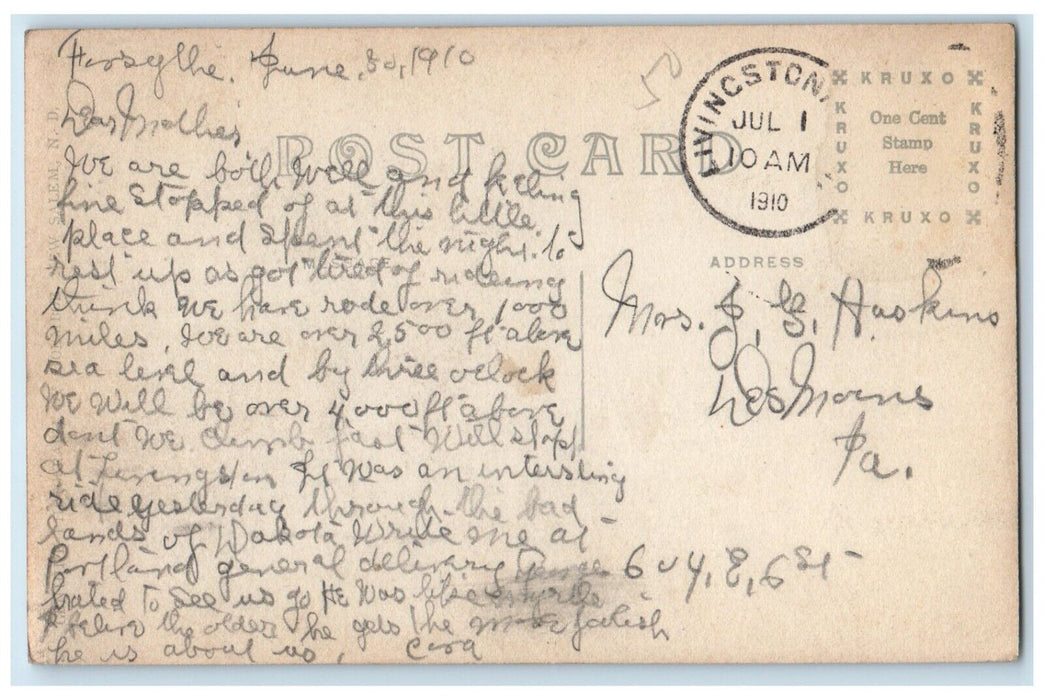 Forsythe. June, 30, 1910
Dear Mother
We are both well and feeling
fine stopped of at this little
place and spent the night to
rest up as got tired of rideing
think we have rode over 1000
miles, We are over 2,500 ft above
sea level and by three oclock
We will be over 4000 ft above
dont we climb fast Will stop
at Livingston It was an intersting
ride yesterday through the bad
lands of Dakota Write me at
Portland general delivery
hated to see us go He was like
I beleive the older he gets the more foolish
he is about us,
POST CARD
LIVINGSTON,
JUL 1
10 AM
1910
KRUXO
KRUXO
KRUXO
KRUXO
One Cent
Stamp
Here
ADDRESS
Mrs. J, G, Haskins
Des Moens
Ia.
604, E, 6 St
W SALEM, N. D.